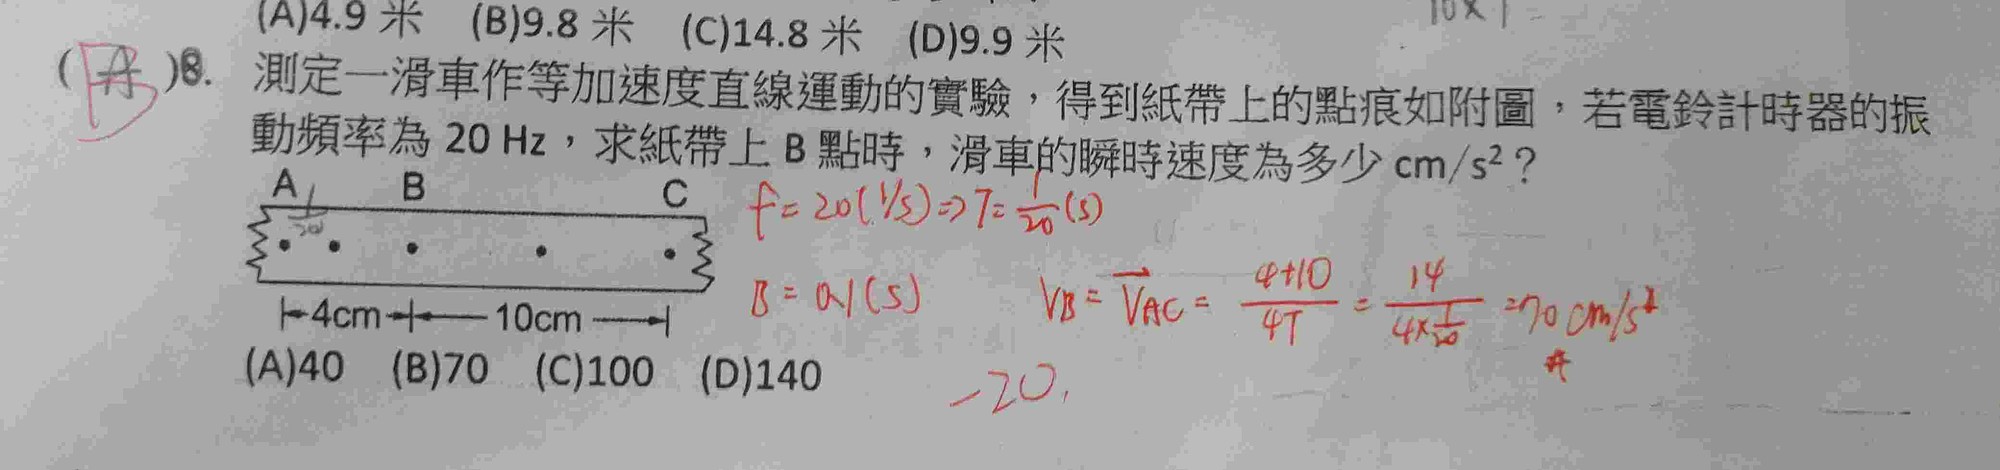 (A)4.9 米 (B)9.8 米 (C)14.8 米 (D)9.9 米
(B)8. 測定一滑車作等加速度直線運動的實驗，得到紙帶上的點痕如附圖，若電鈴計時器的振
動頻率為 20 Hz，求紙帶上 B 點時，滑車的瞬時速度為多少 cm/s²？
A B C
f = 20 (1/s) => T = 1/20 (s)
B = 0.1 (s)
VB = VAC = 4+10/4T = 14/4×1/20 = 70 cm/s
4cm 10cm
(A)40 (B)70 (C)100 (D)140
-20.